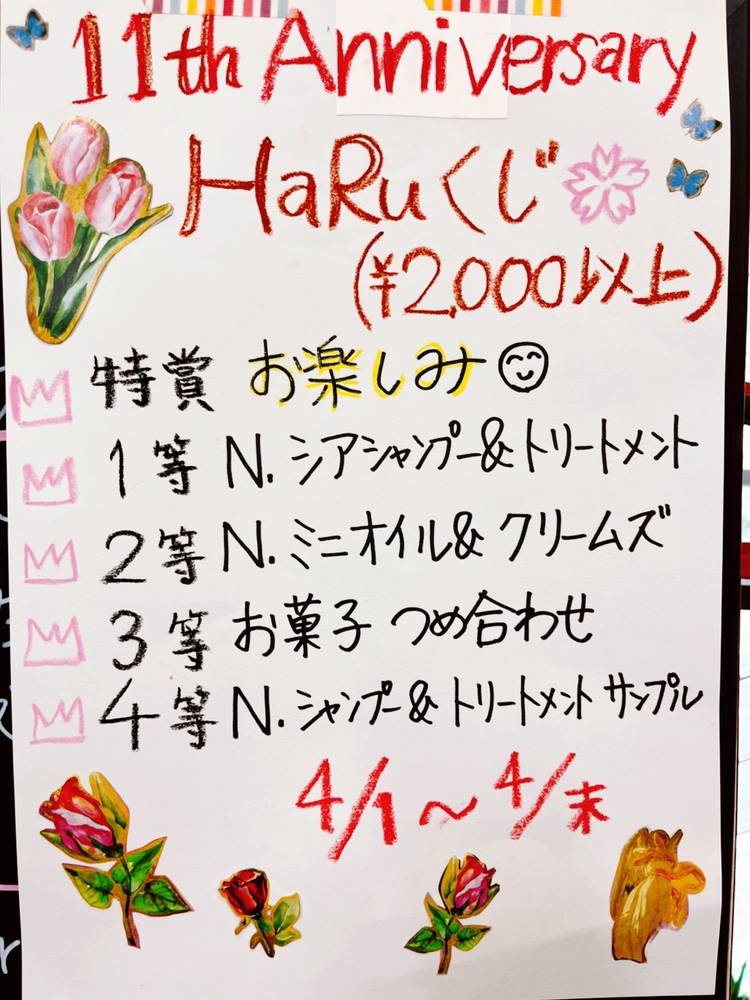 11th Anniversary
HaRuくじ
(¥2,000以上)
特賞 お楽しみ
1等 N. シアシャンプー&トリートメント
2等 N. ミニオイル& クリームズ
3等 お菓子 つめ合わせ
4等 N. シャンプー& トリートメント サンプル
4/1〜4/末